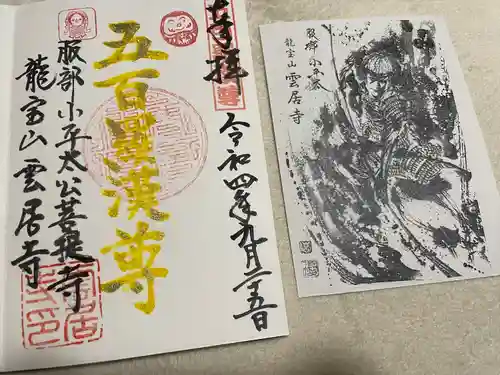 奉拝
令和四年九月二十五日
五百羅漢尊
服部小平太公菩提寺
龍宝山 雲居寺
服部小平太墓
龍宝山 雲居寺